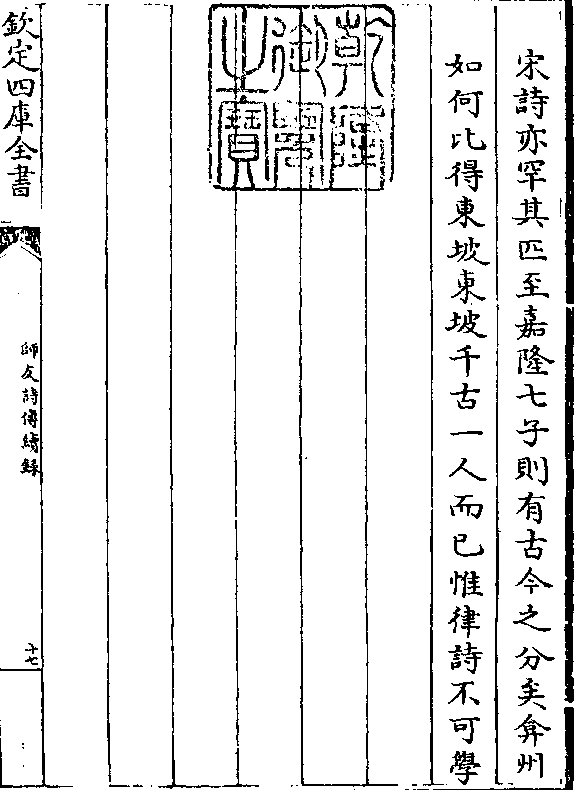 宋詩亦罕其匹至嘉隆七子則有古今之分矣弇州
如何比得東坡東坡千古一人而已惟律詩不可學
乾隆御覽之寶
欽定四庫全書
師友詩傳續錄
十七